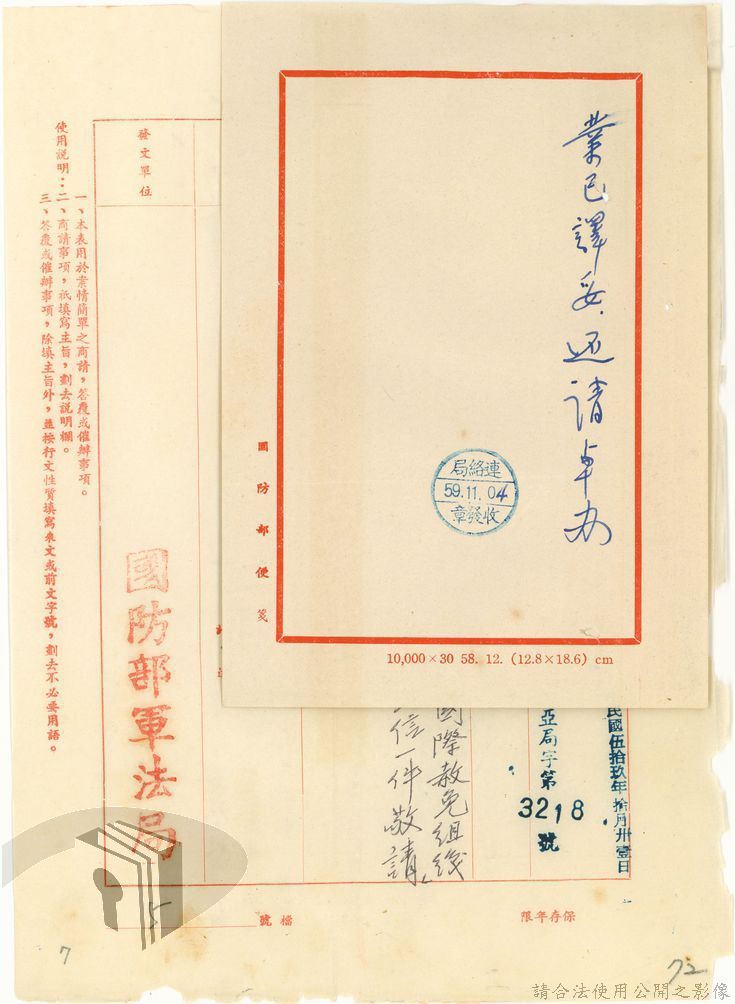 業已譯妥.还請卓办
連絡局
59.11.04
收發章
國防部便箋
10,000×30 58. 12. (12.8×18.6) cm
民國伍拾玖年拾月卅壹日
亞局字第
3218
號
國際赦免組織
信一件敬請
發文單位
國防部軍法局
使用說明：
一、本表用於案情簡單之商請，答覆或催辦事項。
二、商請事項，祇填寫主旨，劃去說明欄。
三、答覆或催辦事項，除填主旨外，並按行文性質填寫來文或前文字號，劃去不必要用語。
保存年限
檔號
5
7
72
請合法使用公開之影像